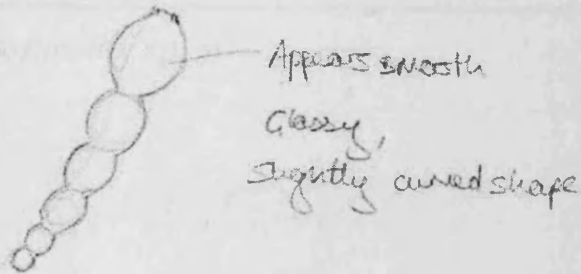 Appears smooth
Glassy,
slightly curved shape